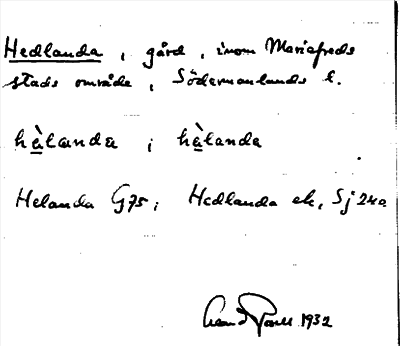 Hedlanda, gård, inom Mariefreds
stads område, Södermanlands l.
hὲlanda ; hὲlanda
Helanda G75; Hedlanda ek, Sj
1932